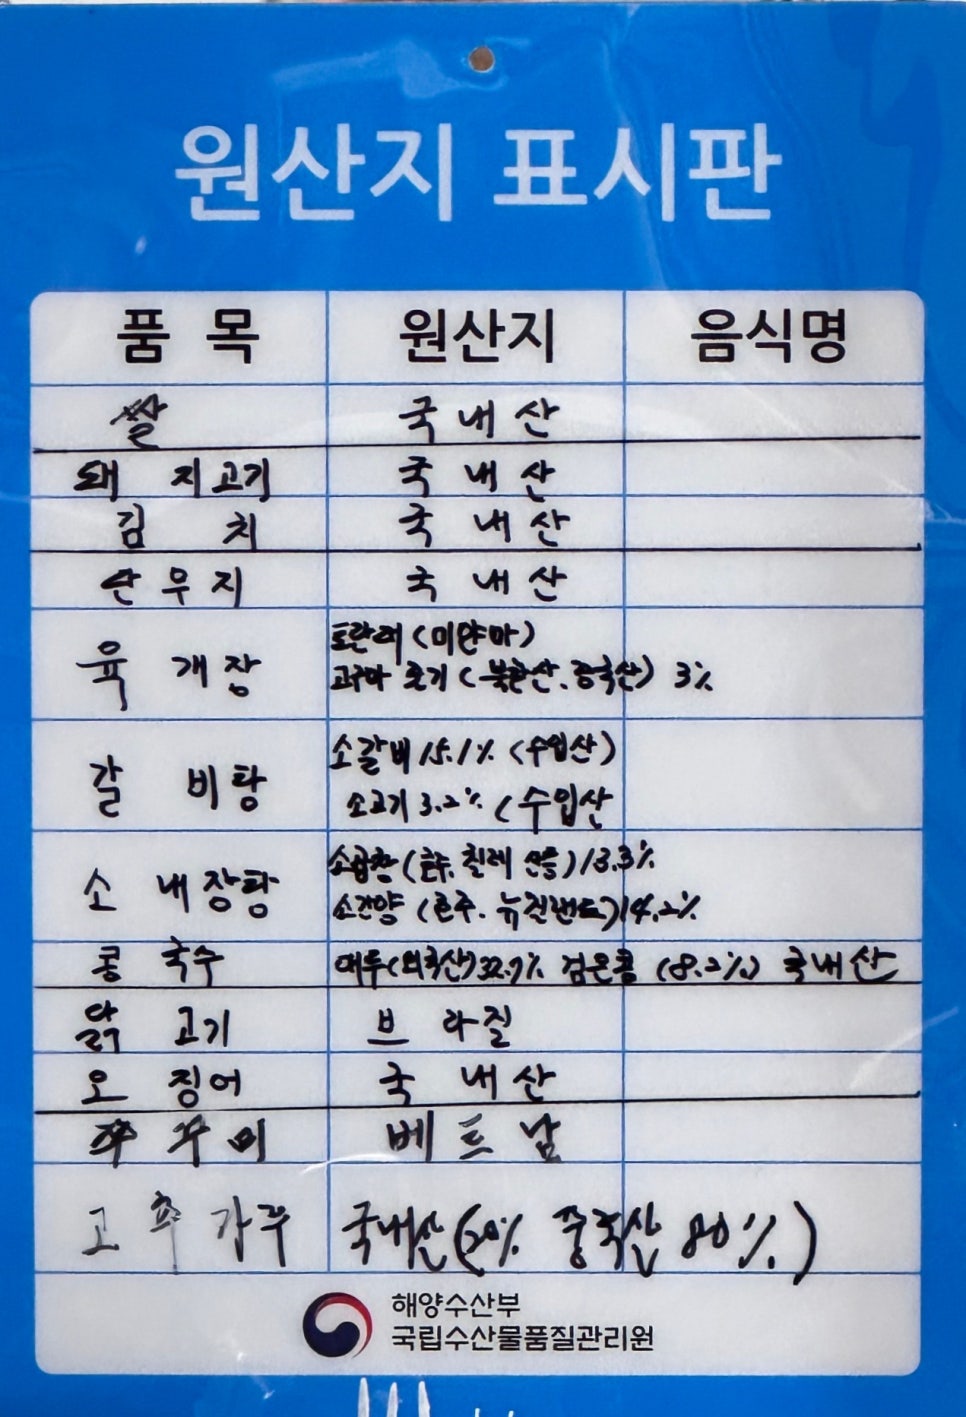 원산지 표시판
품 목 원산지 음식명
쌀 국내산
돼지고기 국내산
김치 국내산
단무지 국내산
육개장 토란대 (미얀마)
고구마 줄기 (북한산. 중국산) 3%
갈비탕 소갈비 15.1% (수입산)
소고기 3.2% (수입산
소내장탕 소곱창 (호주. 칠레 산등) 13.3%
소건양 (호주. 뉴질랜드) 14.2%
콩국수 대두(외국산) 32.7% 검은콩 (8.2%) 국내산
닭고기 브라질
오징어 국내산
쭈꾸미 베트남
고추가루 국내산(20% 중국산 80%)
해양수산부
국립수산물품질관리원